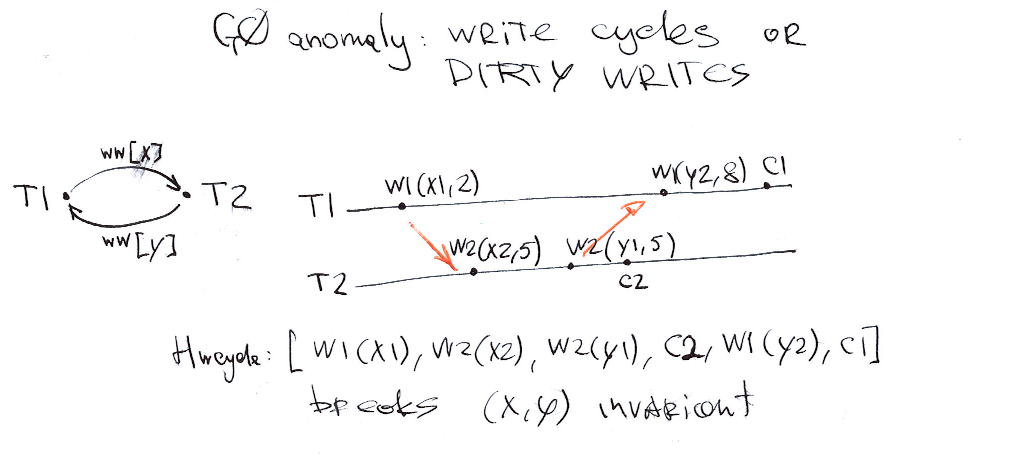 G0 anomaly: WRITE cycles OR
DIRTY WRITES
ww[X]
T1
T2
ww[Y]
T1
W1(X1,2)
W1(Y2,8)
C1
T2
W2(X2,5)
W2(Y1,5)
C2
Hwcycle: [W1(X1), W2(X2), W2(Y1), C2, W1(Y2), C1]
breaks (X,Y) invariant